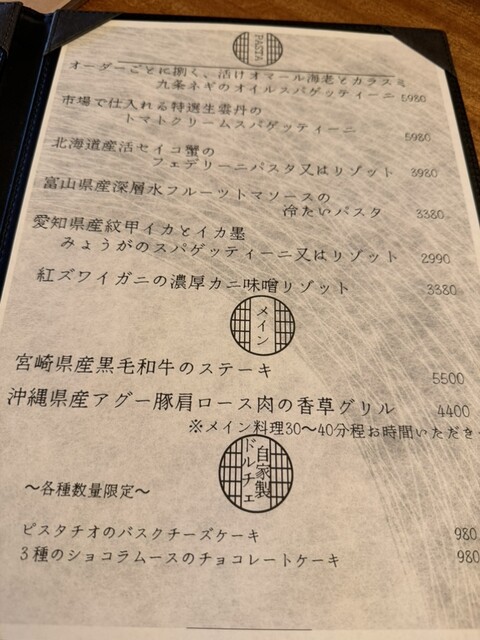 PASTA
オーダーごとに捌く、活けオマール海老とカラスミ
九条ネギのオイルスパゲッティーニ 5980
市場で仕入れる特選生雲丹の
トマトクリームスパゲッティーニ 5980
北海道産活セイコ蟹の
フェデリーニパスタ又はリゾット 3980
富山県産深層水フルーツトマソースの
冷たいパスタ 3380
愛知県産紋甲イカとイカ墨
みょうがのスパゲッティーニ又はリゾット 2990
紅ズワイガニの濃厚カニ味噌リゾット 3380
メイン
宮崎県産黒毛和牛のステーキ 5500
沖縄県産アグー豚肩ロース肉の香草グリル 4400
※メイン料理30～40分程お時間いただき
自家製
ドルチェ
～各種数量限定～
ピスタチオのバスクチーズケーキ 980
3種のショコラムースのチョコレートケーキ 980